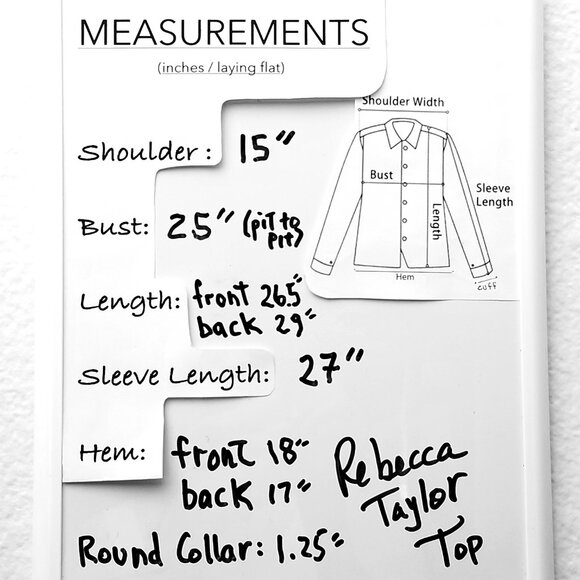 MEASUREMENTS
(inches / laying flat)
Shoulder Width
Shoulder : 15"
Bust
Sleeve
Length
Length
Bust: 25" (pit to
pit)
Hem
cuff
Length: front 26.5"
back 29"
Sleeve Length: 27"
Hem: front 18"
back 17"
Rebecca
Taylor
Top
Round Collar: 1.25"